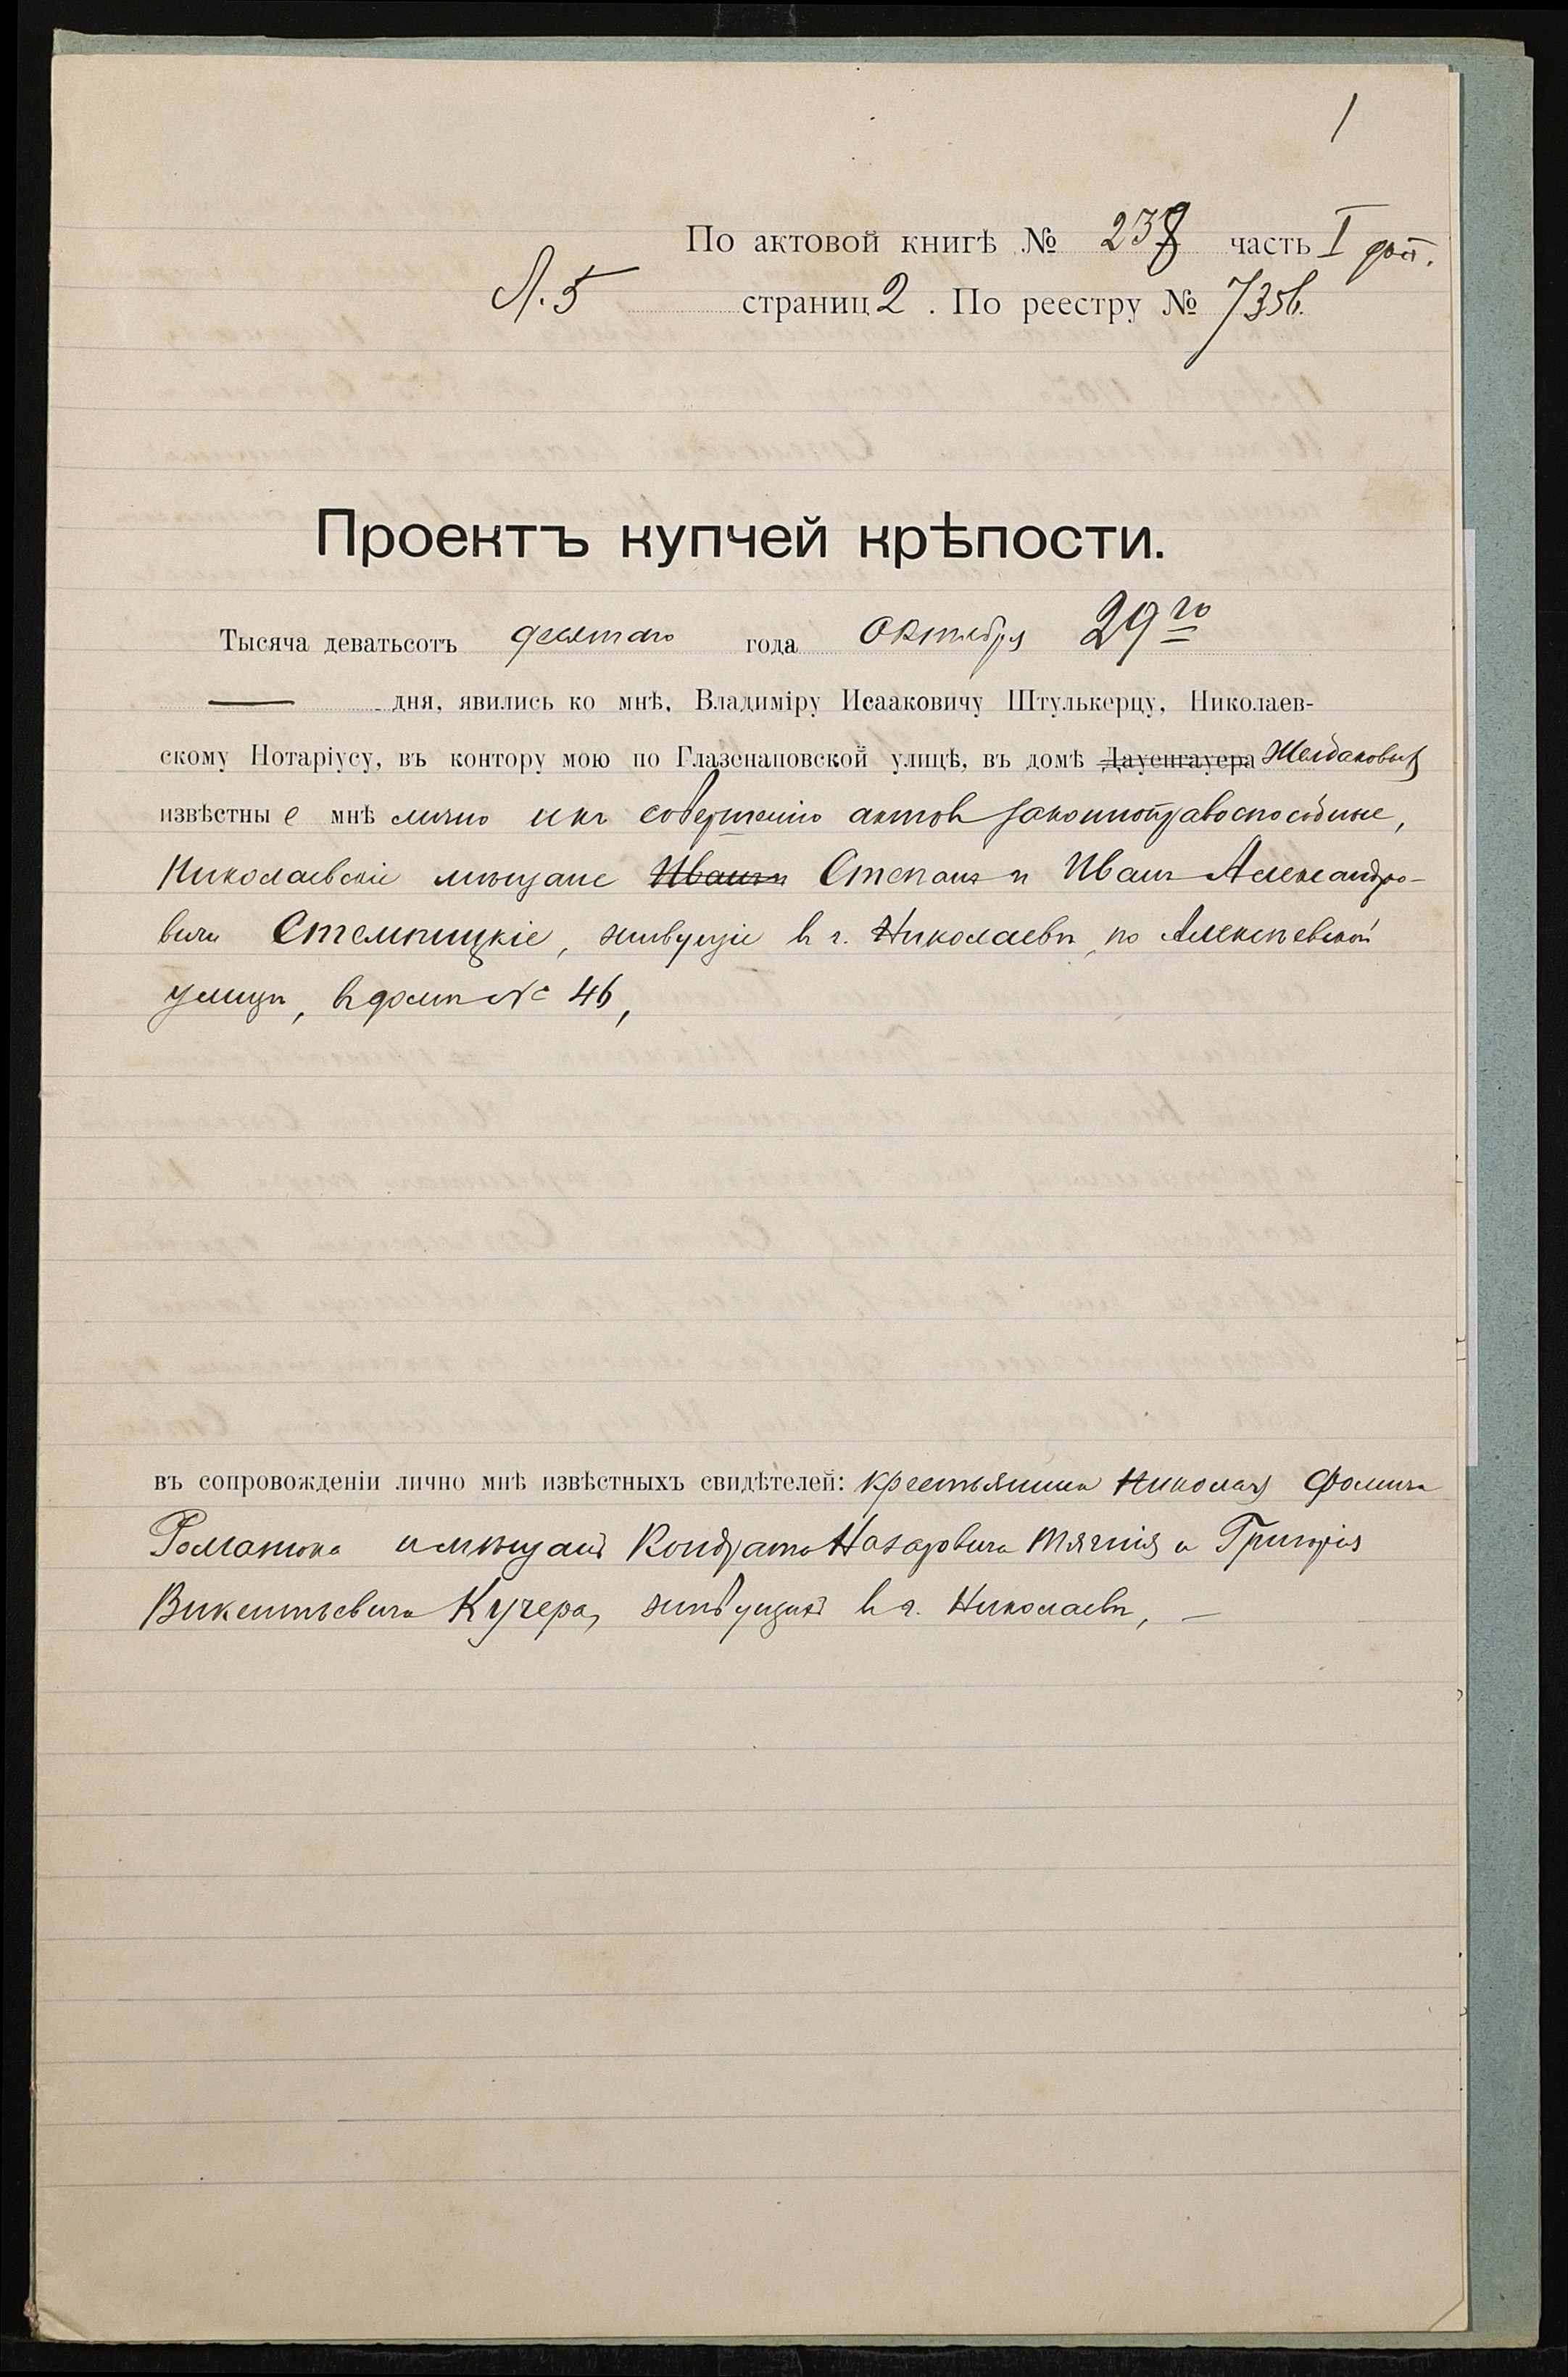 1
По актовой книгѣ № 238 часть I
Л. 5 страниц 2 . По реестру № 7356.
Проектъ купчей крѣпости.
Тысяча деватьсотъ десятаго года Октября 29го
дня, явились ко мнѣ, Владиміру Исааковичу Штулькерцу, Николаев-
скому Нотаріусу, въ контору мою по Глазенаповской улицѣ, въ домѣ Дауенгауера
извѣстны е мнѣ лично и къ совершенію актовъ законноправоспособные,
Николаевскіе мѣщане Иванъ и Степанъ и Иванъ Александро-
вичи Стемпицкіе, живущіе въ г. Николаевѣ, по Алексѣевской
улицѣ, въ домѣ № 46,
въ сопровожденіи лично мнѣ извѣстныхъ свидѣтелей: крестьянина Николая Фомича
Романюка и мѣщанъ Кондрата Назаровича Тягнія и Григорія
Викентьевича Кучера, живущихъ въ г. Николаевѣ, —